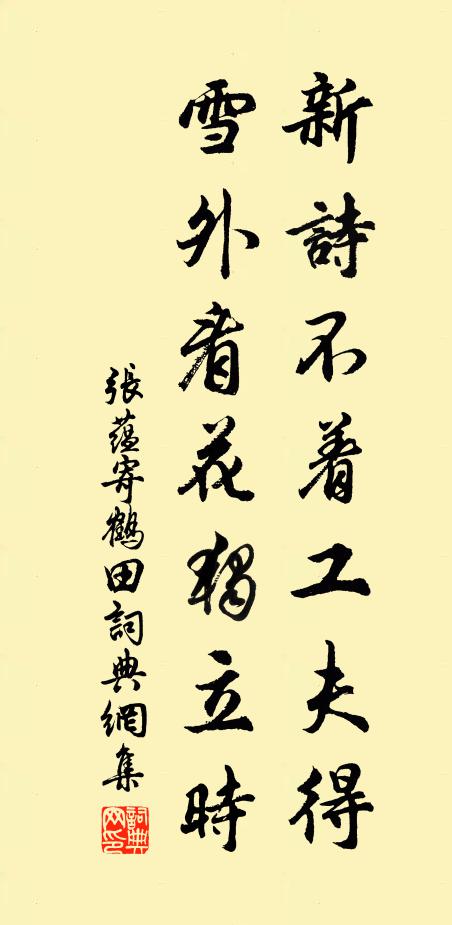 新詩不着工夫得
雪外看花獨立時
張蘊寄鶴田詞典網集
詞典網印